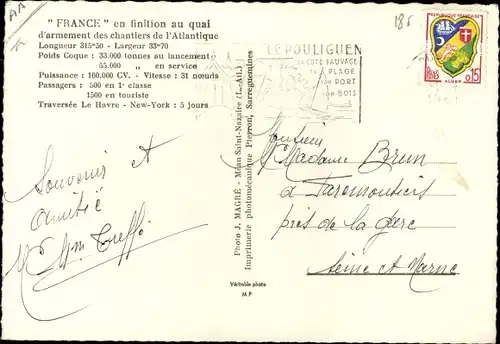 " FRANCE " en finition au quai
d'armement des chantiers de l'Atlantique
Longueur 315m50 - Largeur 33m70
Poids Coque : 33.000 tonnes au lancement
55.000 " en service
Puissance : 160.000 CV. - Vitesse : 31 nœuds
Passagers : 500 en 1e classe
1500 en touriste
Traversée Le Havre - New-York : 5 jours
Souvenir et
Amitié
Photo J. MAGRÉ - Méan-Saint-Nazaire (L.-Atl.)
Imprimerie photomécanique Pierron, Sarreguemines
Véritable photo
M P
LE POULIGUEN
SA CÔTE SAUVAGE
SA PLAGE
SON PORT
SON BOIS
REPUBLIQUE FRANÇAISE
POSTES
0,15
ALGER
Monsieur
Madame Brun
à Faremoutiers
près de la gare
Seine et Marne